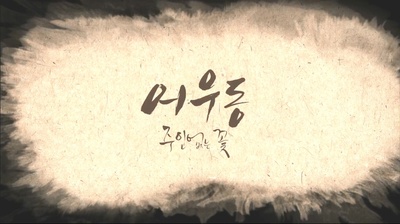 어우동
주인없는 꽃